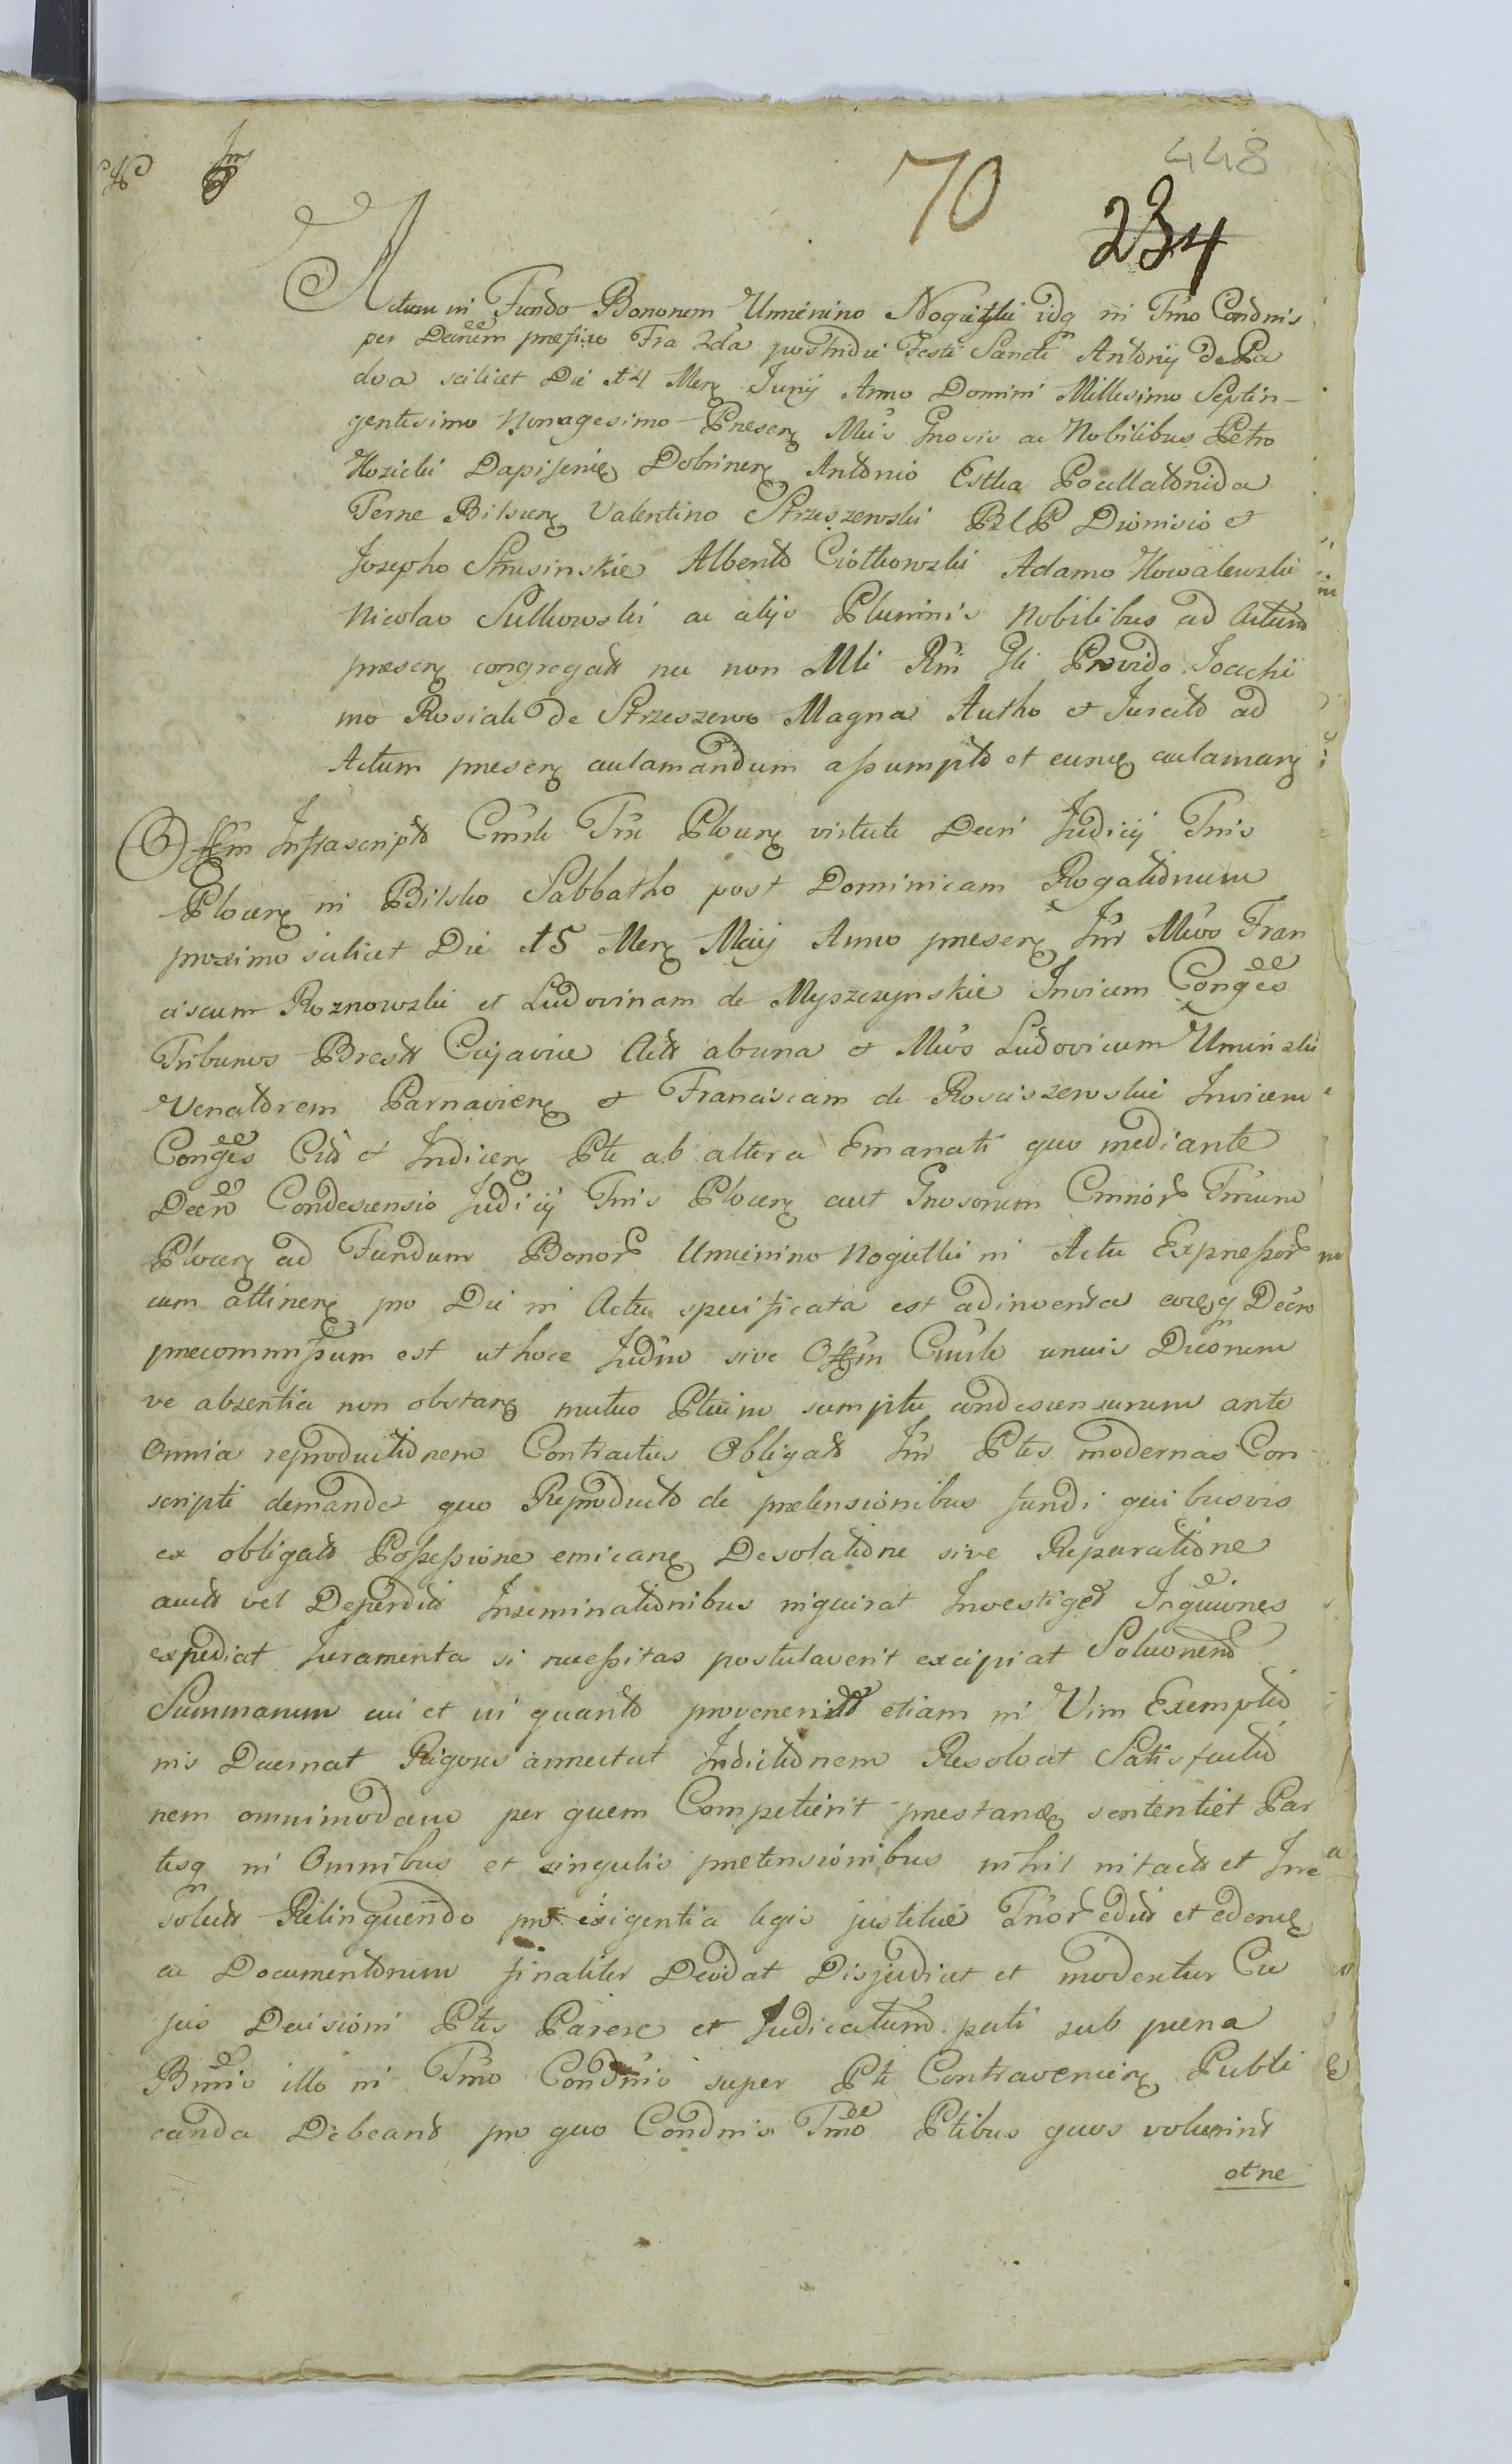 448
70
234
Actum in Fundo Bonorum Umienino Nogietki idq in Tmo Condnis
per Decrum prefixo Fra 2da postridie Festi Sancti Antonij de Pa
dva scilicet Die 14 Mens Junij Anno Domini Millesimo Septin-
gentesimo Nonagesimo Presen Mcis Gnosis ac Nobilibus Petro
Kozicki Dapiferide Dobrinen Antonio Estka
Terre Bilscen Valentino Strzeszewski BLP Dionisio et
Josepho Strusinskie Alberto Ciołkowski Adamo Kowalewski
Nicolao Sulkowski ac alijs Plurimis Nobilibus ad Actum
presen congregatt nec non Mli Rmi Gli Provido Joachi
mo Rosiak de Strzeszewo Magna Autho et Jurato ad
Actum presen aclamandum assumpto et eunde aclaman
Offm Infrascripto Cmrle Tre Plocen virtute Decri Judicij Tris
Plocen in Bilsko Sabbatho post Dominicam Rogationum
proximo scilicet Die 15 Mens Maij Anno presen Intr Mcos Fran
ciscum Roznowski et Ludovinam de Myszczynskie Invicem Conges
Tribunos Brestt Cujavie Actt abuna et Mcos Ludovicum Uminski
Venatorem Parnavien et Franciscam de Rosciszewskie Invicem
Conges Citt et Indicen Pte ab altera Emanati quo mediante
Decro Condescensio Judicij Tris Plocen aut Gnosorum Cmrior Trium
Plocen ad Fundum Bonor Umienino Nogietki in Actu Expressor
cum attinen pro Die in Actu specificata est adinventa eoq Decro
precommissum est ut hocce Judm sive Offm Cmrle unius Duorum
ve absentia non obstan mutuo Ptium sumptu condescensurum ante
Omnia reproductionem Contractus Obligatt Intr Ptes modernas Con
scripti demandet quo Reproducto de pretensionibus fundi quibusvis
ex obligatt Possessione emican Desolatione sive Reparatione
auctt vel Deperditt Inseminationibus inquirat Investiget Inquiones
expediat Juramenta si necessitas postulaverit excipiat Soluonem
Summarum cui et in quanto provenerit etiam in Vim Exemptio
nis Decernat Rigores annectat Indictionem Resolvat Satisfactio
nem omnimodam per quem Competierit prestande sententiet Par
tesq in Omnibus et singulis pretensionibus nihil intactt et Irre
solutt Relinquendo pro exigentia legis justitie Tnor edit et edend
ac Documentorum finaliter Decidat Disjudicet et moderetur Cu
jus Decisioni Ptes Parere et Judicatum pati sub pena
Bmis illo in Tmo Condnis super Pte Contravenien Publi
canda Debeant pro quo Condnis Tmo Ptibus quos voluerint
et ne